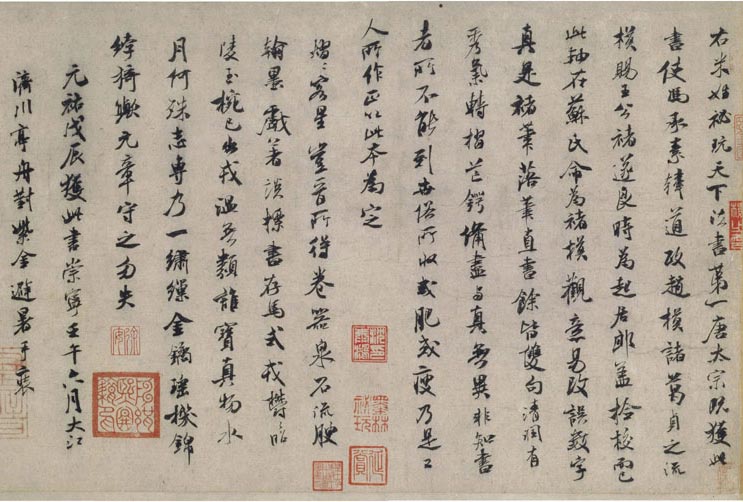 右米姓秘玩天下法書第一唐太宗既獲此
書使馮承素韓道政趙模諸葛貞之流
模賜王公褚遂良時為起居郎蓋撿校而已
此軸在蘇氏命為褚模觀意易改誤數字
真是褚筆落筆直書餘皆雙勾清潤有
秀氣轉摺芒鍔備盡與真無異非知書
者所不能到世俗所收或肥或瘦乃是工
人所作正以此本為定
熠々客星豈晉所得卷器泉石流腴
翰墨戲著談標書存馬式欝昭
陵玉椀已出戎温無類誰寶真物水
月何殊志專乃一繡繅金鐍瑤機錦
綷猗歟元章守之勿失
元祐戊辰獲此書崇寧壬午六月大江
濟川亭舟對紫金避暑手裝